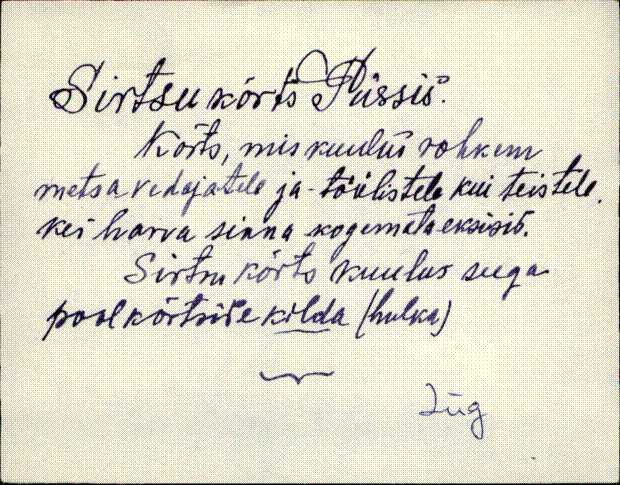 Sirtsu kõrts Püssis.
Kõrts, mis kuulus rohkem
metsavedajatele ja -töölistele kui teistele,
kes harva sinna kogemata eksisid.
Sirtsu kõrts kuulus seega
poolkõrtside kilda (hulka)
Lüg